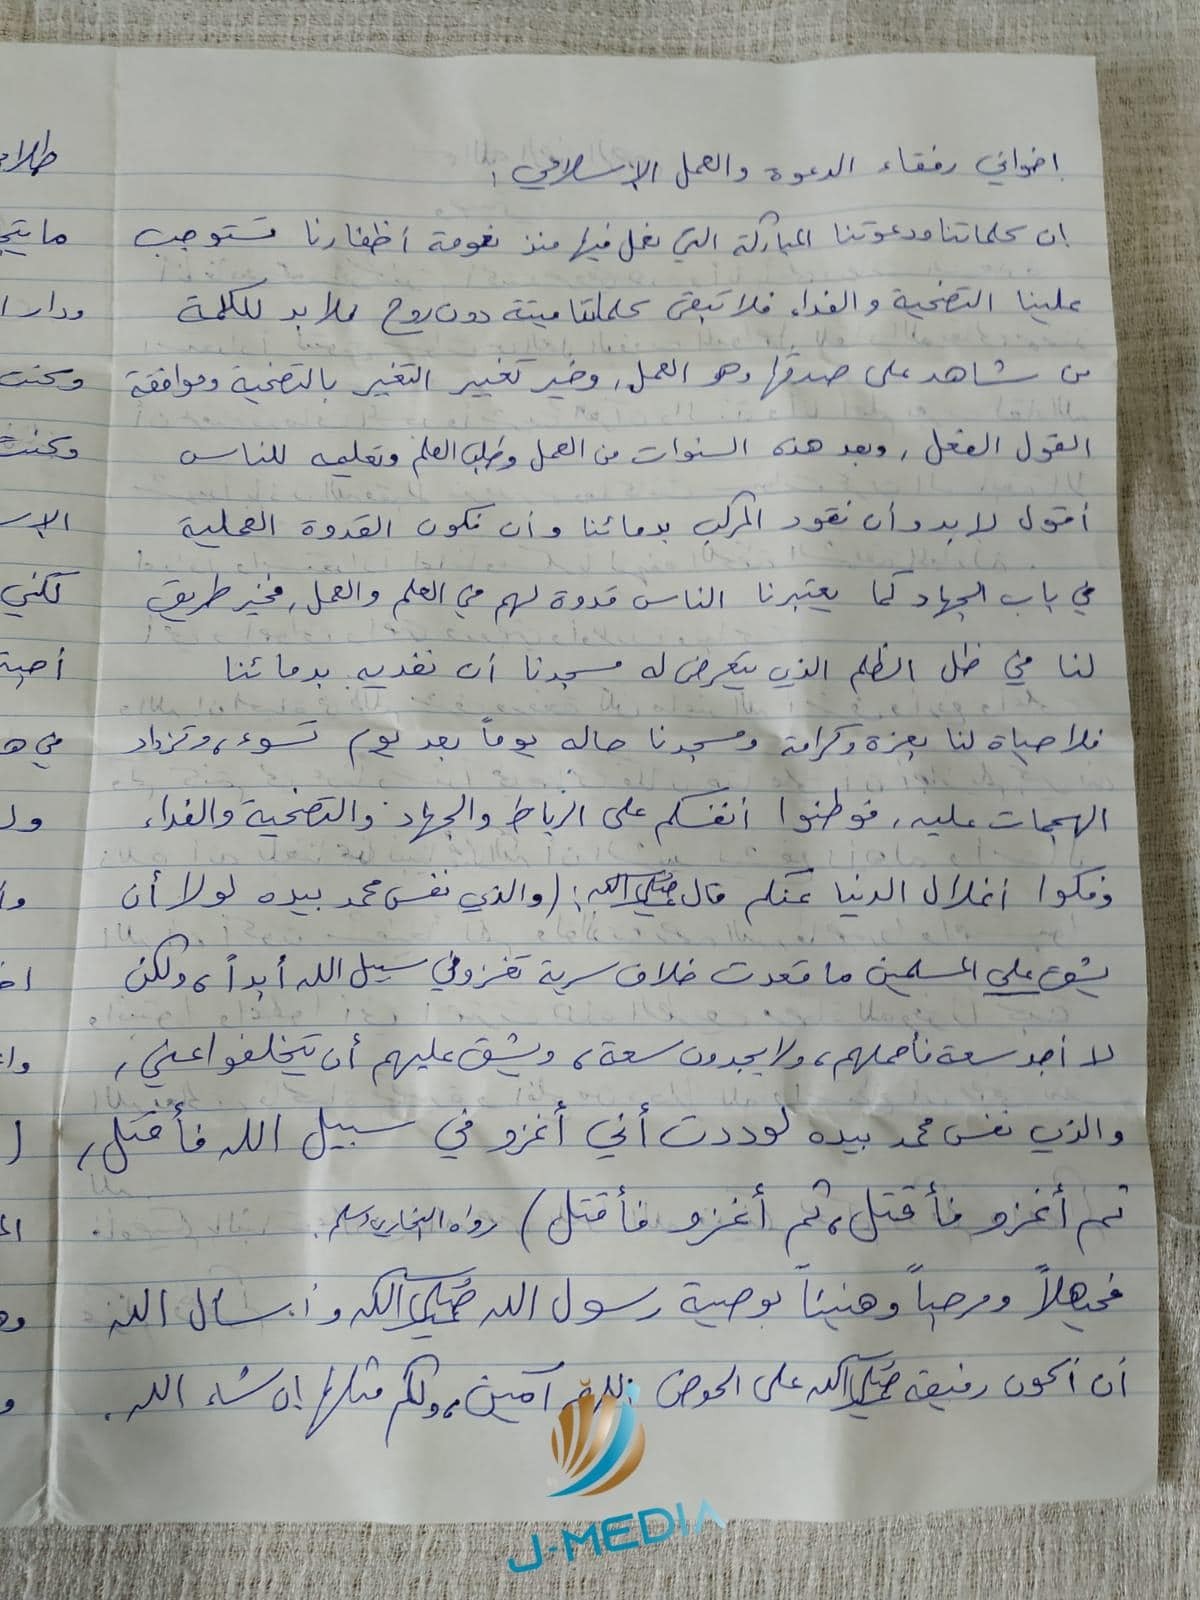 اخواني رفقاء الدعوة والعمل الإسلامي:
ان كلماتنا ودعوتنا المباركة التي نعمل فيها منذ نعومة أظفارنا تستوجب
علينا التضحية والفداء فلا تبقى كلماتنا ميتة دون روح فلا بد للكلمة
من شاهد على صدقها وهو العمل، وخير تغيير التغيير بالتضحية وموافقة
القول الفعل، وبعد هذه السنوات من العمل وطلب العلم وتعليمه للناس
أقول لا بد وأن نقود المركب بدمائنا وأن نكون القدوة العملية
في باب الجهاد كما يعتبرنا الناس قدوة لهم في العلم والعمل، فخير طريق
لنا في ظل الظلم الذي يتعرض له مسجدنا أن نفديه بدمائنا
فلا حياة لنا بعزة وكرامة ومسجدنا حاله يوماً بعد يوم تسوء، وتزداد
الهجمات عليه، فوطنوا أنفسكم على الرباط والجهاد والتضحية والفداء
وفكوا أغلال الدنيا عنكم قال ﷺ: (والذي نفس محمد بيده لولا أن
يشق على المسلمين ما قعدت خلاف سرية تغزو في سبيل الله أبداً، ولكن
لا أجد سعة فأحملهم، ولا يجدون سعة، ويشق عليهم أن يتخلفوا عني،
والذي نفس محمد بيده لوددت أني أغزو في سبيل الله فأقتل،
ثم أغزو فأقتل، ثم أغزو فأقتل) رواه البخاري ومسلم.
فحيهلاً ومرحباً وهنيئاً بوصية رسول الله ﷺ وأسأل الله
أن أكون رفيقه ﷺ على الحوض اللهم آمين، ولكم مثلها إن شاء الله.
J-MEDIA